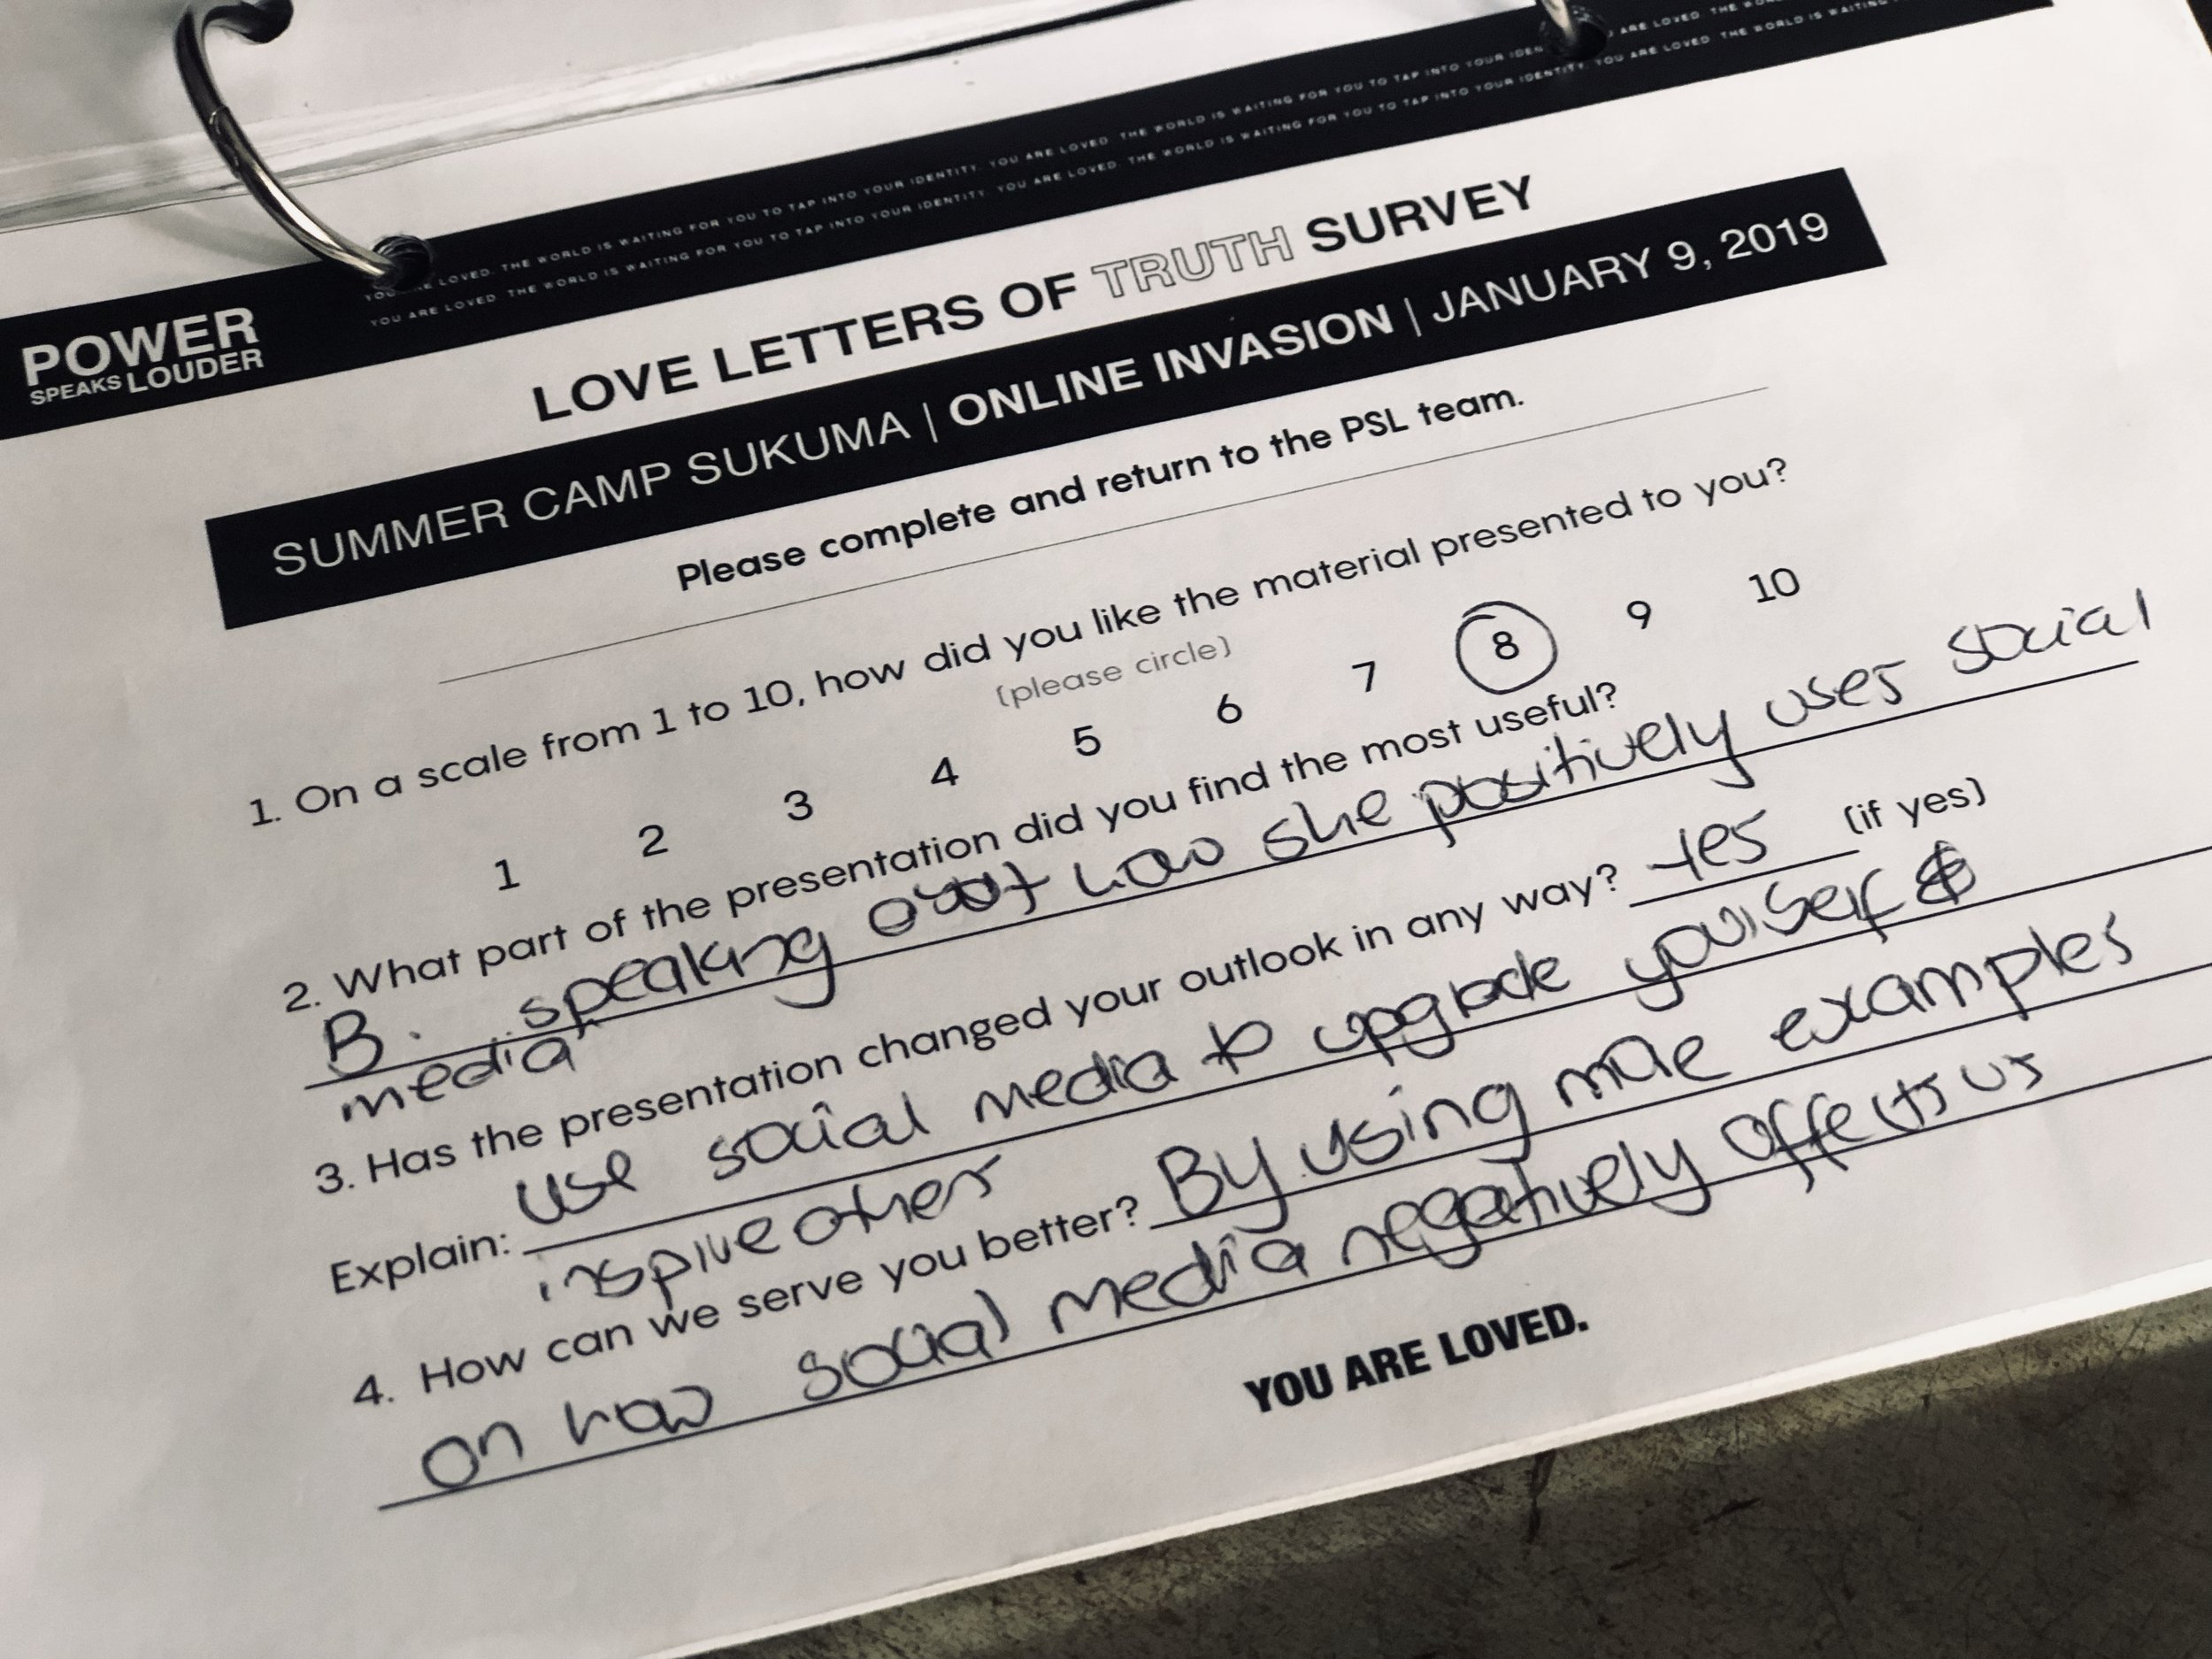 YOU ARE LOVED. THE WORLD IS WAITING FOR YOU TO TAP INTO YOUR IDENTITY. YOU ARE LOVED. THE WORLD IS WAITING FOR YOU TO TAP INTO YOUR IDENTITY. YOU ARE LOVED. THE WORLD
YOU ARE LOVED. THE WORLD IS WAITING FOR YOU TO TAP INTO YOUR IDENTITY. YOU ARE LOVED. THE WORLD IS WAITING FOR YOU TO TAP INTO YOUR IDENTITY. YOU ARE LOVED. THE WORLD IS WAITING
POWER
SPEAKS LOUDER
LOVE LETTERS OF TRUTH SURVEY
SUMMER CAMP SUKUMA | ONLINE INVASION | JANUARY 9, 2019
Please complete and return to the PSL team.
1. On a scale from 1 to 10, how did you like the material presented to you?
(please circle)
1 2 3 4 5 6 7 8 9 10
2. What part of the presentation did you find the most useful?
B. speaking how she positively uses social
media
3. Has the presentation changed your outlook in any way? Yes (if yes)
Explain: use social media to upgrade yourself &
inspire other
4. How can we serve you better? By using more examples
on how social media negatively affects us
YOU ARE LOVED.